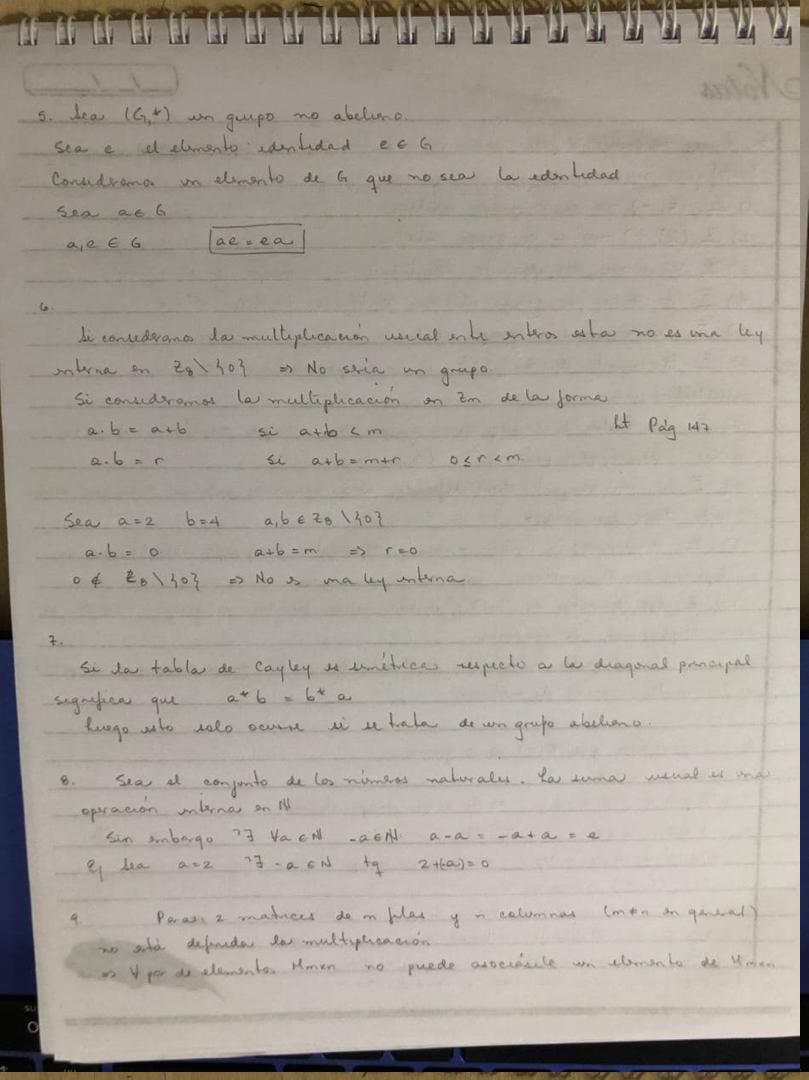 Notas
5. Sea (G,*) un grupo no abeliano.
Sea e el elemento identidad e ∈ G
Consideramos un elemento de G que no sea la identidad
Sea a ∈ G
a,e ∈ G ae = ea
6.
Si consideramos la multiplicación usual entre enteros esta no es una ley
interna en Z8\{0} => No sería un grupo.
Si consideramos la multiplicación en Zm de la forma
a·b = a+b si a+b < m Pág 147
a·b = r si a+b = m+r 0 ≤ r < m
Sea a=2 b=4 a,b ∈ Z8\{0}
a·b = 0 a+b = m => r=0
0 ∉ Z8\{0} => No es una ley interna.
7.
Si la tabla de Cayley es simétrica respecto a la diagonal principal
significa que a*b = b*a
Luego esto solo ocurre si se trata de un grupo abeliano.
8. Sea el conjunto de los números naturales. La suma usual es una
operación interna en N
Sin embargo ¬∃ ∀a∈N -a∈N a-a = -a+a = e
Ej Sea a=2 ¬∃ -a ∈ N tq 2+(-a)=0
9. Para 2 matrices de m filas y n columnas (m≠n en general)
no está definida la multiplicación
=> ∀ par de elementos Mmxn no puede asociársele un elemento de Mmxn